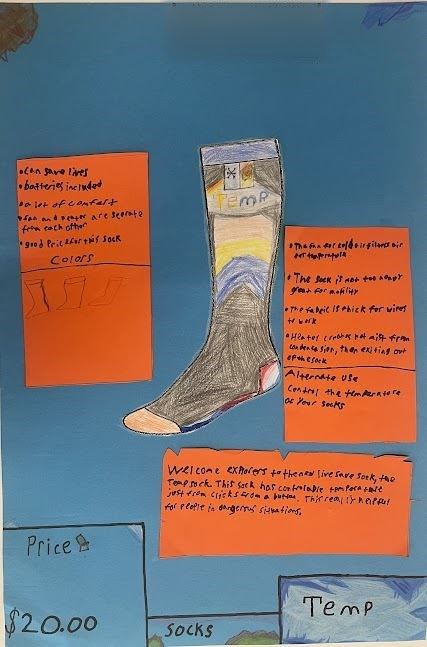 •Can save lives
•batteries included
•a lot of comfort
•Fan and heater are seperate
from each other
•good Price for this sock
Colors
Temp
•The fan for cold air filters air
per temperature
•The sock is not too heavy
great for mobility
•The fabric is thick for wires
to work
•Heater creates hot mist from
condensation, then exiting out
of the sock
Alternate use
Control the temperature
of your socks
Welcome explorers to the new live save sock, the
Temp sock. This sock has controlable temperature
just from clicks from a button. This really helpful
for people in dangerous situations.
Price
$20.00
socks
Temp